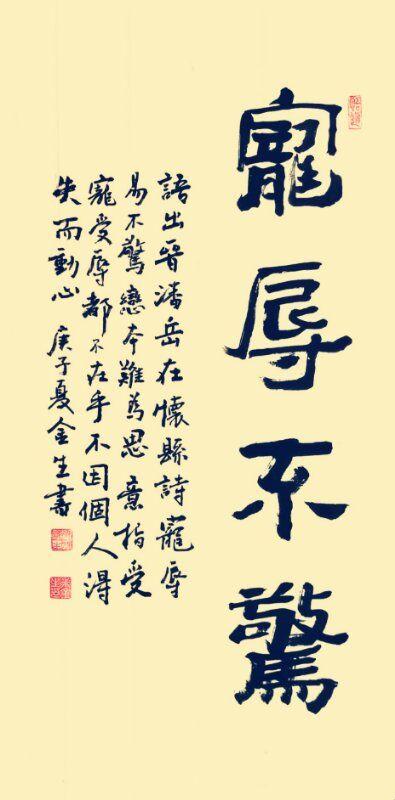 寵辱不驚
語出晉潘岳在懷縣詩寵辱
易不驚戀本難為思意指受
寵受辱都不在乎不因個人得
失而動心庚子夏金生書